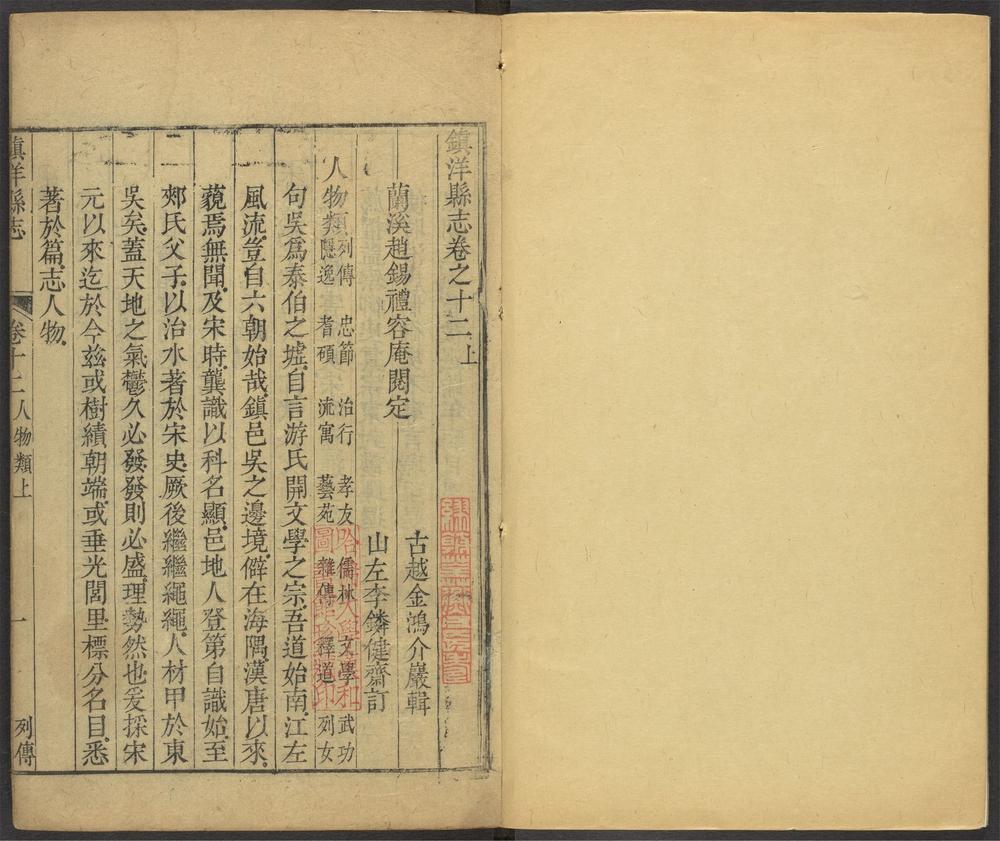 鎮洋縣志卷之十二上
蘭溪趙錫禮容庵閱定
古越金鴻介巖輯
山左李鏻健齋訂
人物類列傳 忠節 治行 孝友 儒林 文學 武功
隱逸 耆碩 流寓 藝苑 雜傳 釋道 列女
句吳爲泰伯之墟自言游氏開文學之宗吾道始南江左
風流豈自六朝始哉鎮邑吳之邊境僻在海隅漢唐以來
藐焉無聞及宋時龔識以科名顯邑地人登第自識始至
郟氏父子以治水著於宋史厥後繼繼繩繩人材甲於東
吳矣蓋天地之氣鬱久必發發則必盛理勢然也爰採宋
元以來迄於今茲或樹績朝端或垂光閭里標分名目悉
著於篇志人物
鎮洋縣志 卷十二人物類上 一 列傳